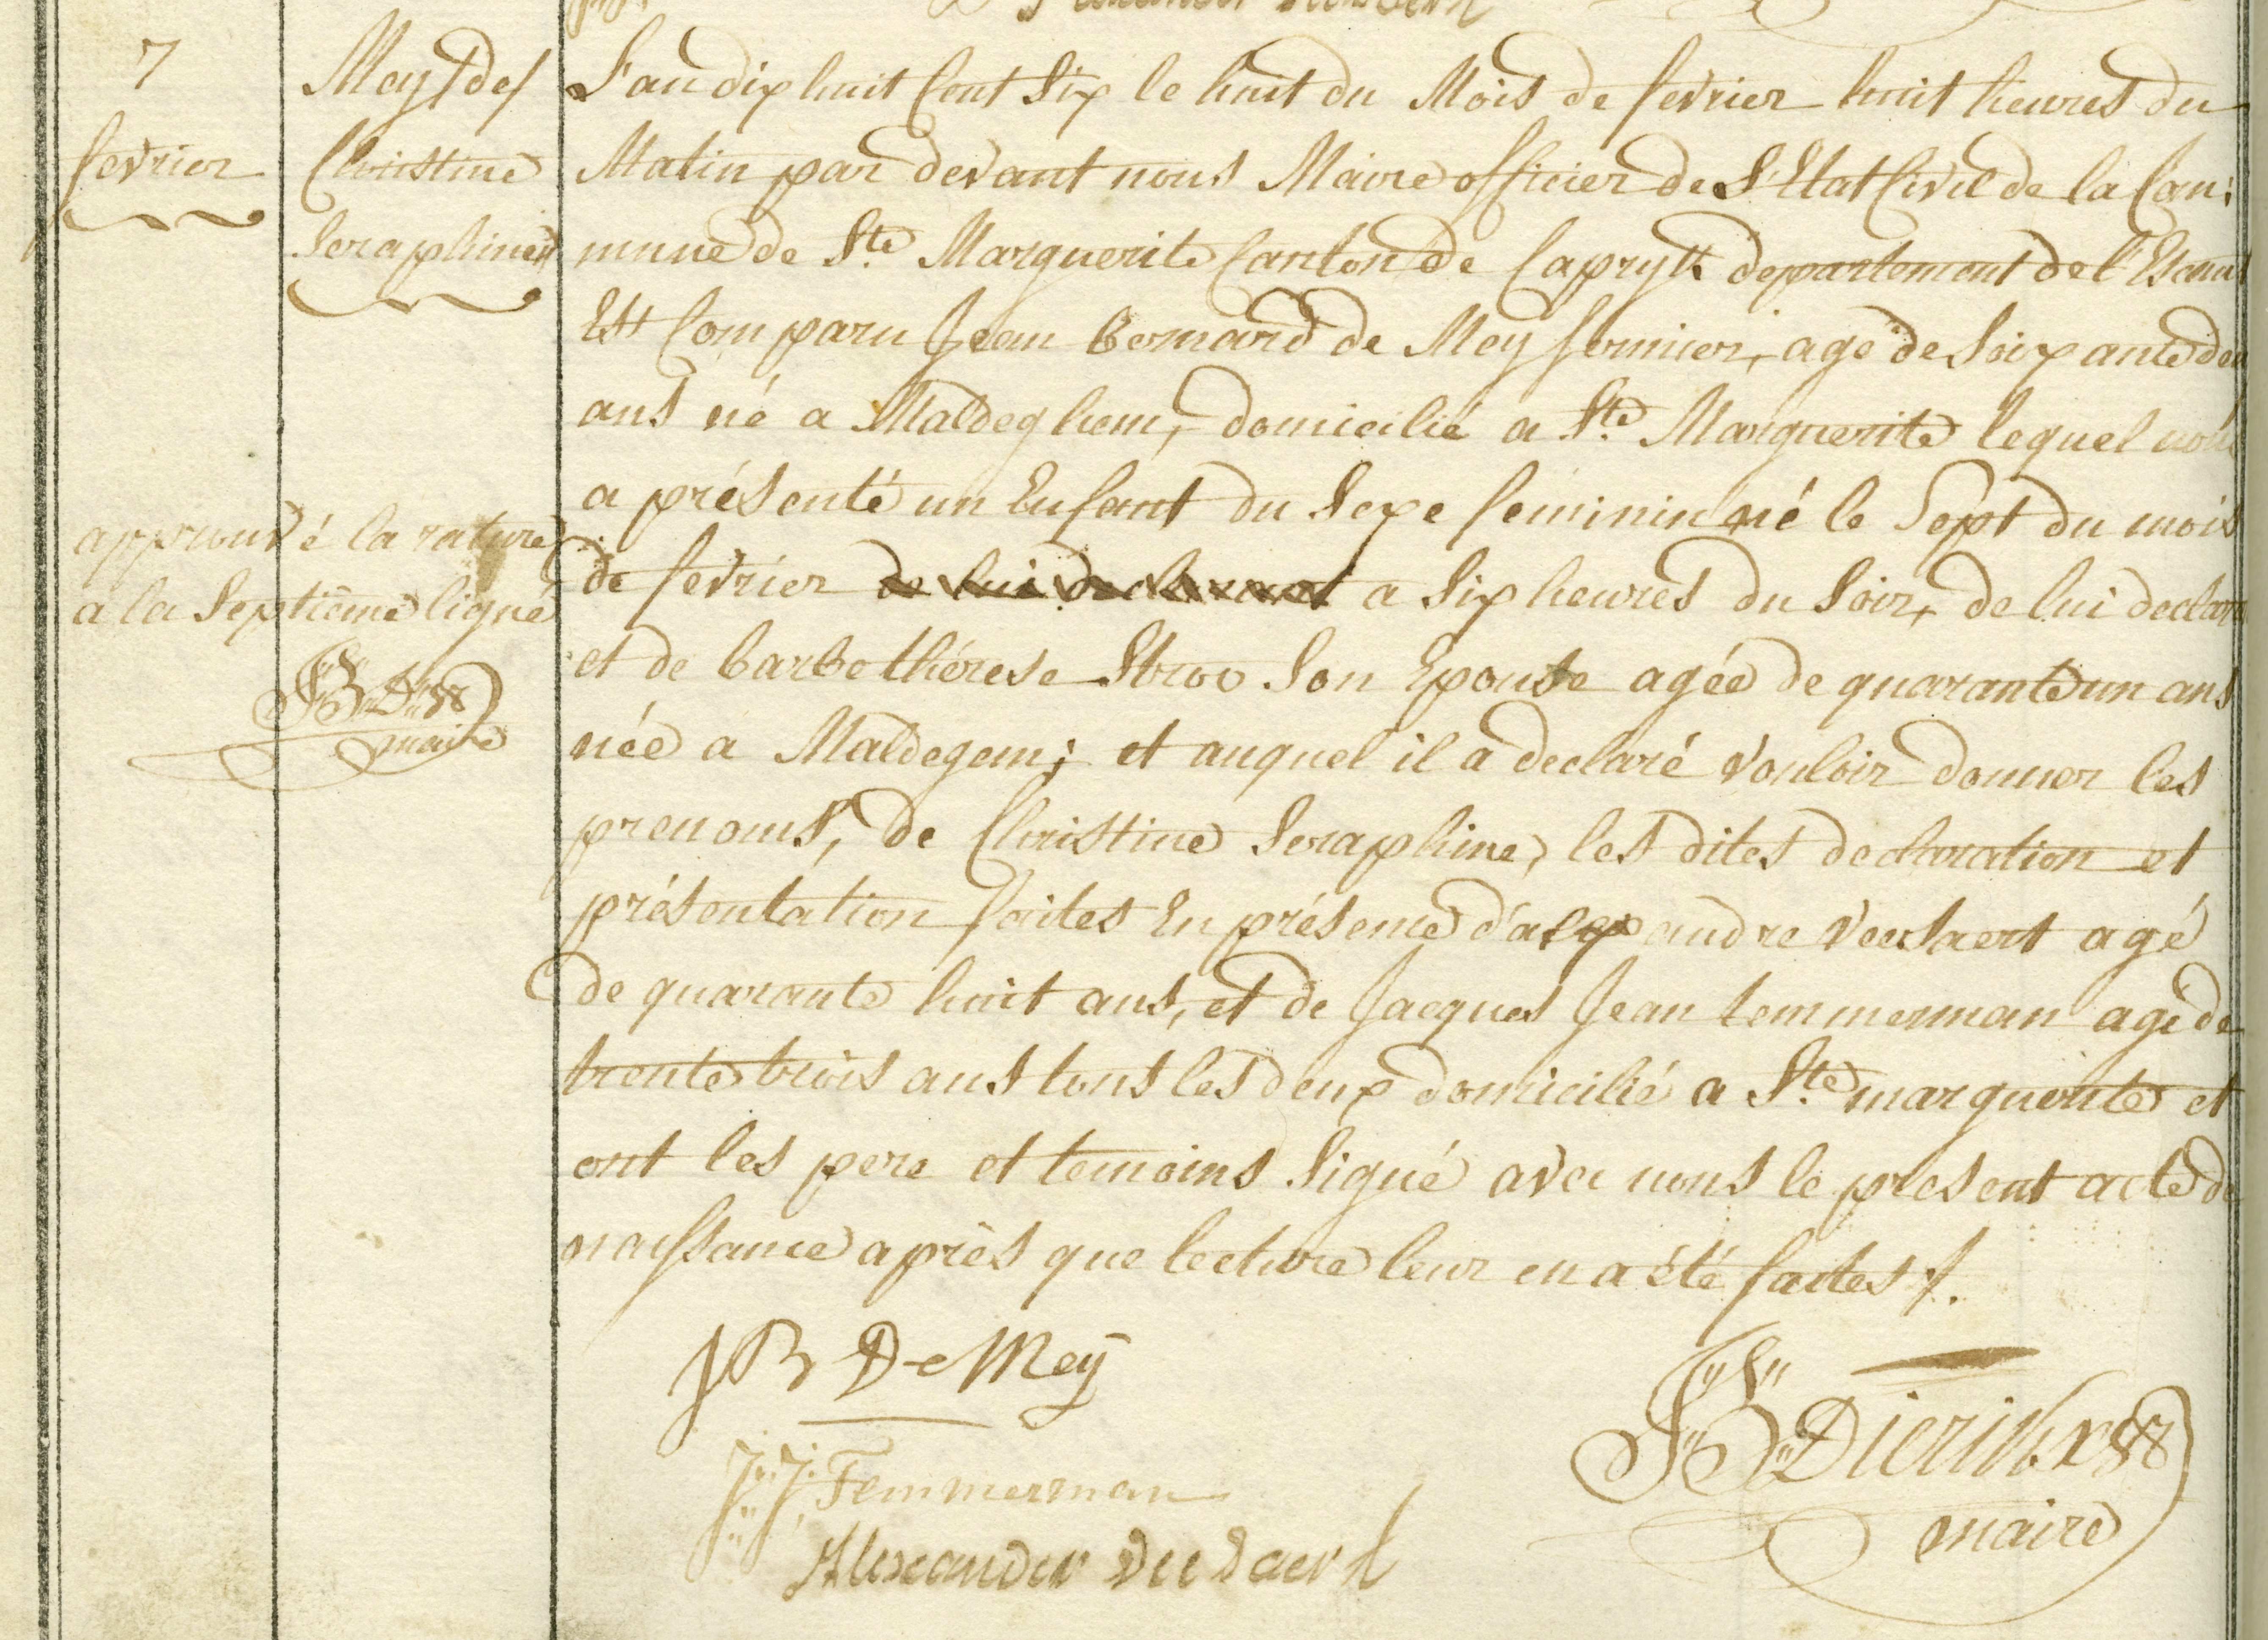 7
fevrier
Mey /de/
Christine
Seraphine
L'an dix huit Cent Six le huit du Mois de fevrier huit heures du
Matin par devant nous Maire officier de L'Etat Civil de la Com:
mune de Ste. Marguerite Canton de Capryk departement de l'Escaut
Est Comparu Jean Bernard de Mey fermier, agé de Soixante deu
ans né a Maldeghem, domicilié a Ste. Marguerite lequel nous
a présenté un Enfant du Sexe feminin né le Sept du mois
de fevrier de lui declarant a Six heures du Soir, de lui declara
et de barbe thérese Stroo Son Epouse agée de quarante un ans
née a Maldegem; et auquel il a declaré vouloir donner les
prenoms, de Christine Seraphine, les dites declaration et
présentation faites En présence d'alexandre Veeslaert agé
de quarante huit ans, et de Jacques Jean temmerman agé de
trente trois ans tous les deux domicilié a Ste. marguerite et
ont les pere et temoins Signé avec nous le present acte de
naissance après que lecture leur en a été faites /.
approuvé la rature
a la Septième ligne
JB D
maire
JB De Meÿ
J:J: Temmerman
Alexander
JB Dierikx
maire